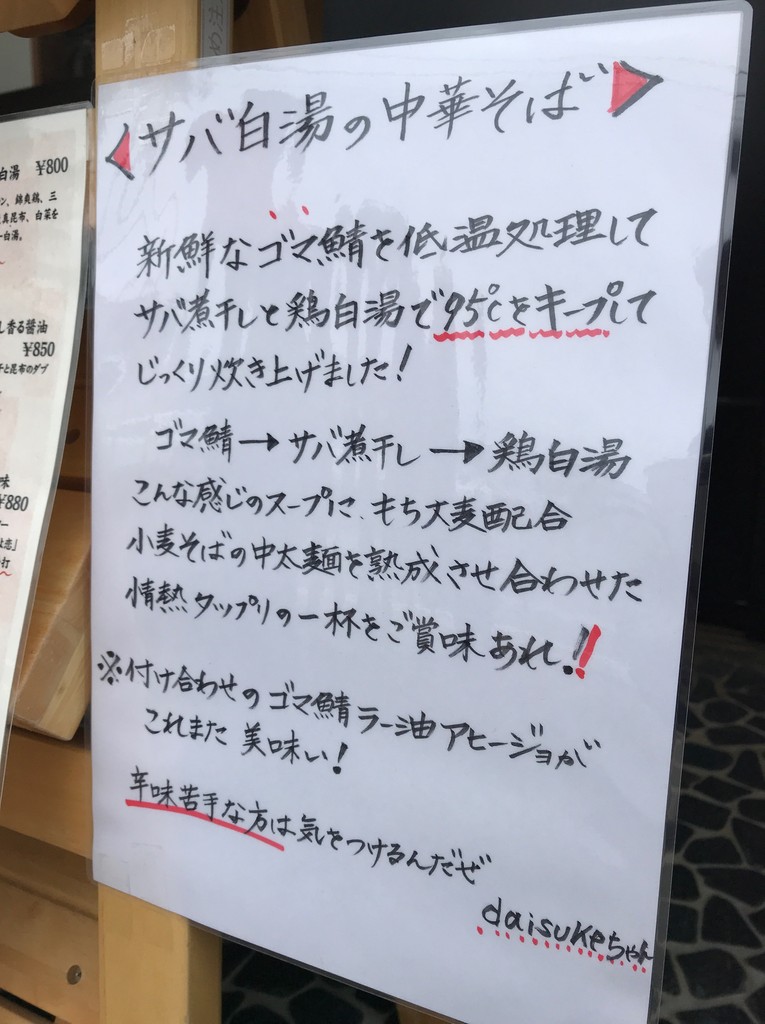 サバ白湯の中華そば
新鮮なゴマ鯖を低温処理して
サバ煮干しと鶏白湯で95℃をキープして
じっくり炊き上げました!
ゴマ鯖→サバ煮干し→鶏白湯
こんな感じのスープに、もち大麦配合
小麦そばの中太麺を熟成させ合わせた
情熱タップリの一杯をご賞味あれ!!
※付け合わせのゴマ鯖ラー油アヒージョが
これまた美味い!
辛味苦手な方は気をつけるんだぜ
daisukeちゃん
白湯 ¥800
ン、錦爽鶏、三
真昆布、白菜を
白湯。
し香る醤油
¥850
干と昆布のダブ
味
¥880